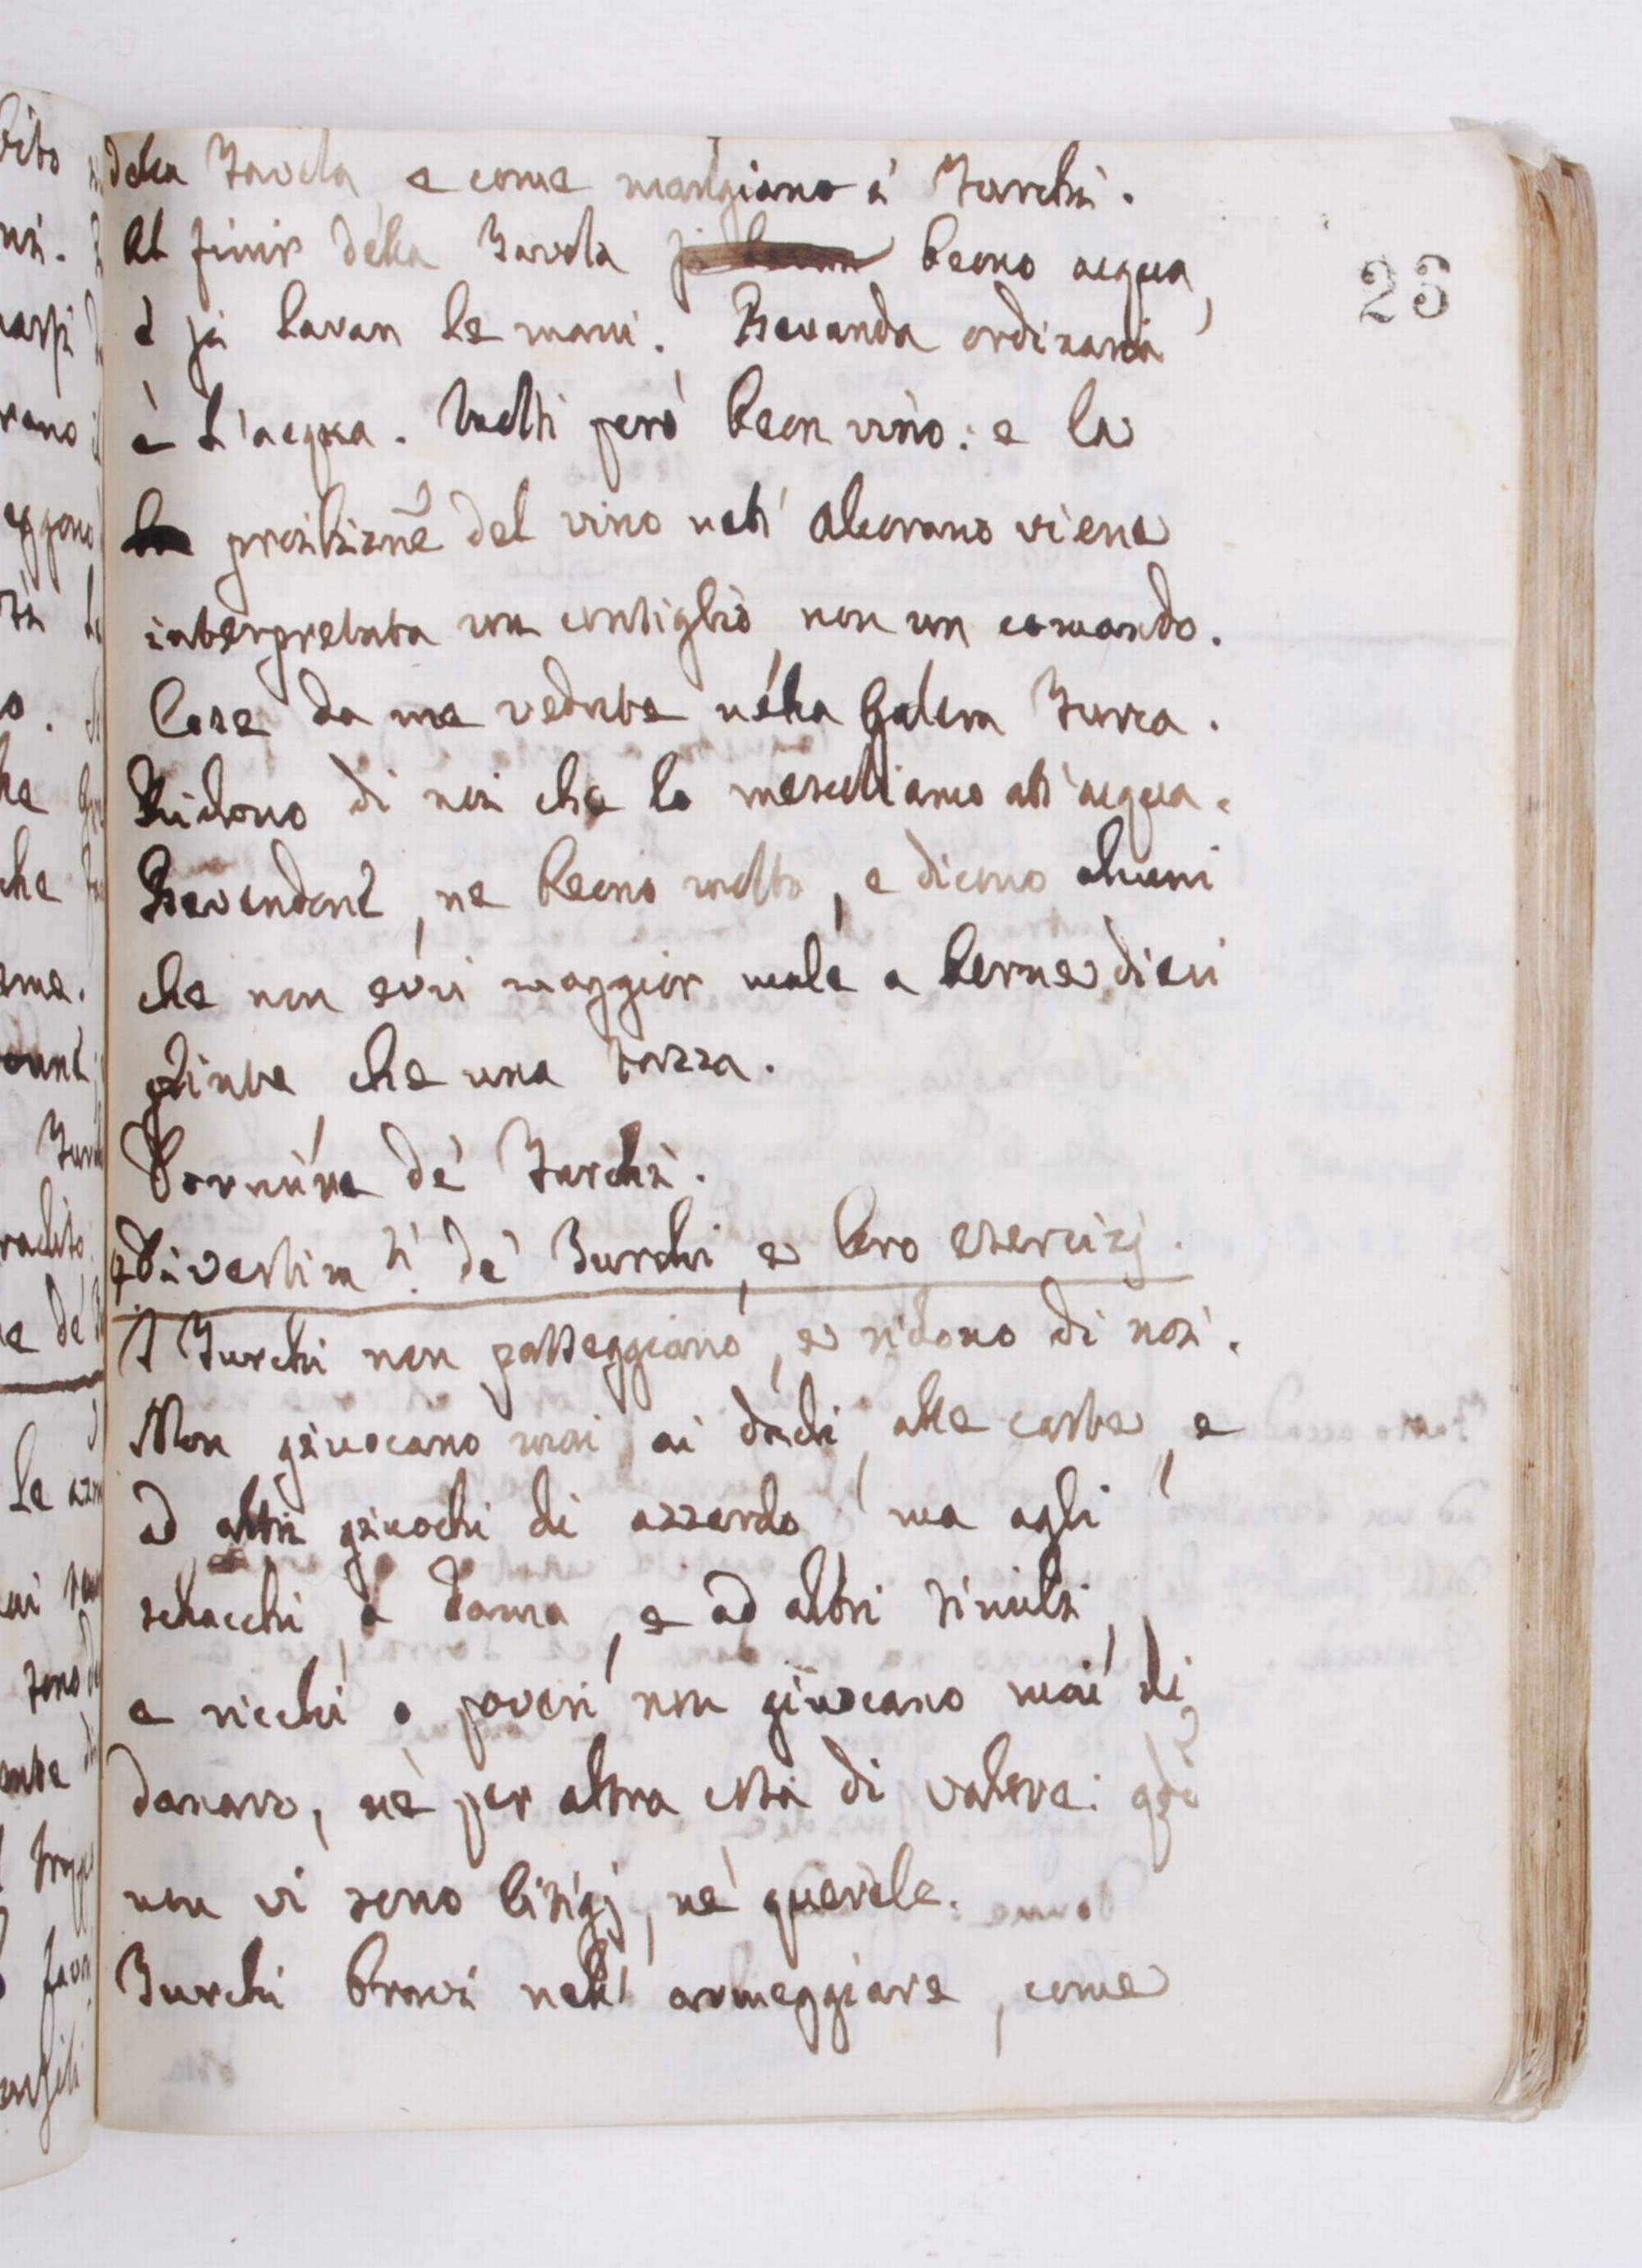 della Tavola, e come mangiano i Turchi.
Al finir della Tavola si beono acqua,
e si lavan le mani. Bevanda ordinaria
è l'acqua. Molti però beon vino: e la
proibizione del vino nell'Alcorano viene
interpretata un consiglio, non un comando.
Cose da me vedute nella Galera Turca.
Ridono di noi che lo meschiamo all'acqua.
Bevendone, ne beono molto, e dicono alcuni
che non evvi maggior male a berne dieci
pinte che una tazza.
Dormire de' Turchi.
Divertim.ti de' Turchi, e loro esercizj.
I Turchi non passeggiano, e ridono di noi.
Non giuocano mai ai dadi, alle carte, e
ad altri giuochi di azzardo, ma agli
schacchi, a dama, e ad altri simili,
e ricchi, o poveri non giuocano mai di
danaro, nè per altra cosa di valore: qdi
non vi sono litigj, nè querele.
Turchi bravi nell'armeggiare, come
23